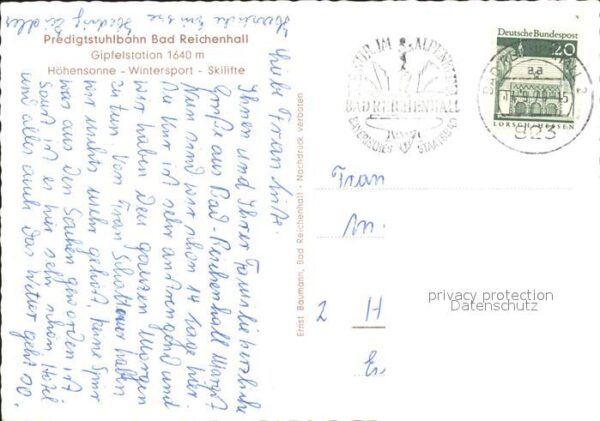 Predigtstuhlbahn Bad Reichenhall
Gipfelstation 1640 m
Höhensonne - Wintersport - Skilifte
Ernst Baumann, Bad Reichenhall - Nachdruck verboten
KUR IM ALPENKLIMA
BAD REICHENHALL
BAYERISCHES STAATSBAD
Deutsche Bundespost
20
LORSCH/HESSEN
BAD REICHENHALL 2
aa
Liebe Frau
Ihnen und Ihrer Familie herzliche
Grüße aus Bad-Reichenhall
Nun sind wir schon 14 Tage hier
die Kur ist sehr anstrengend und
wir haben den ganzen Morgen
zu tun. Von Frau haben
wir nichts mehr gehört keine Spur
was aus den Sachen geworden ist
Sonst ist es hier sehr schön Hotel
und alles auch das Wetter geht so.
Herzliche Grüße
Frau
M.
2 H
privacy protection
Datenschutz